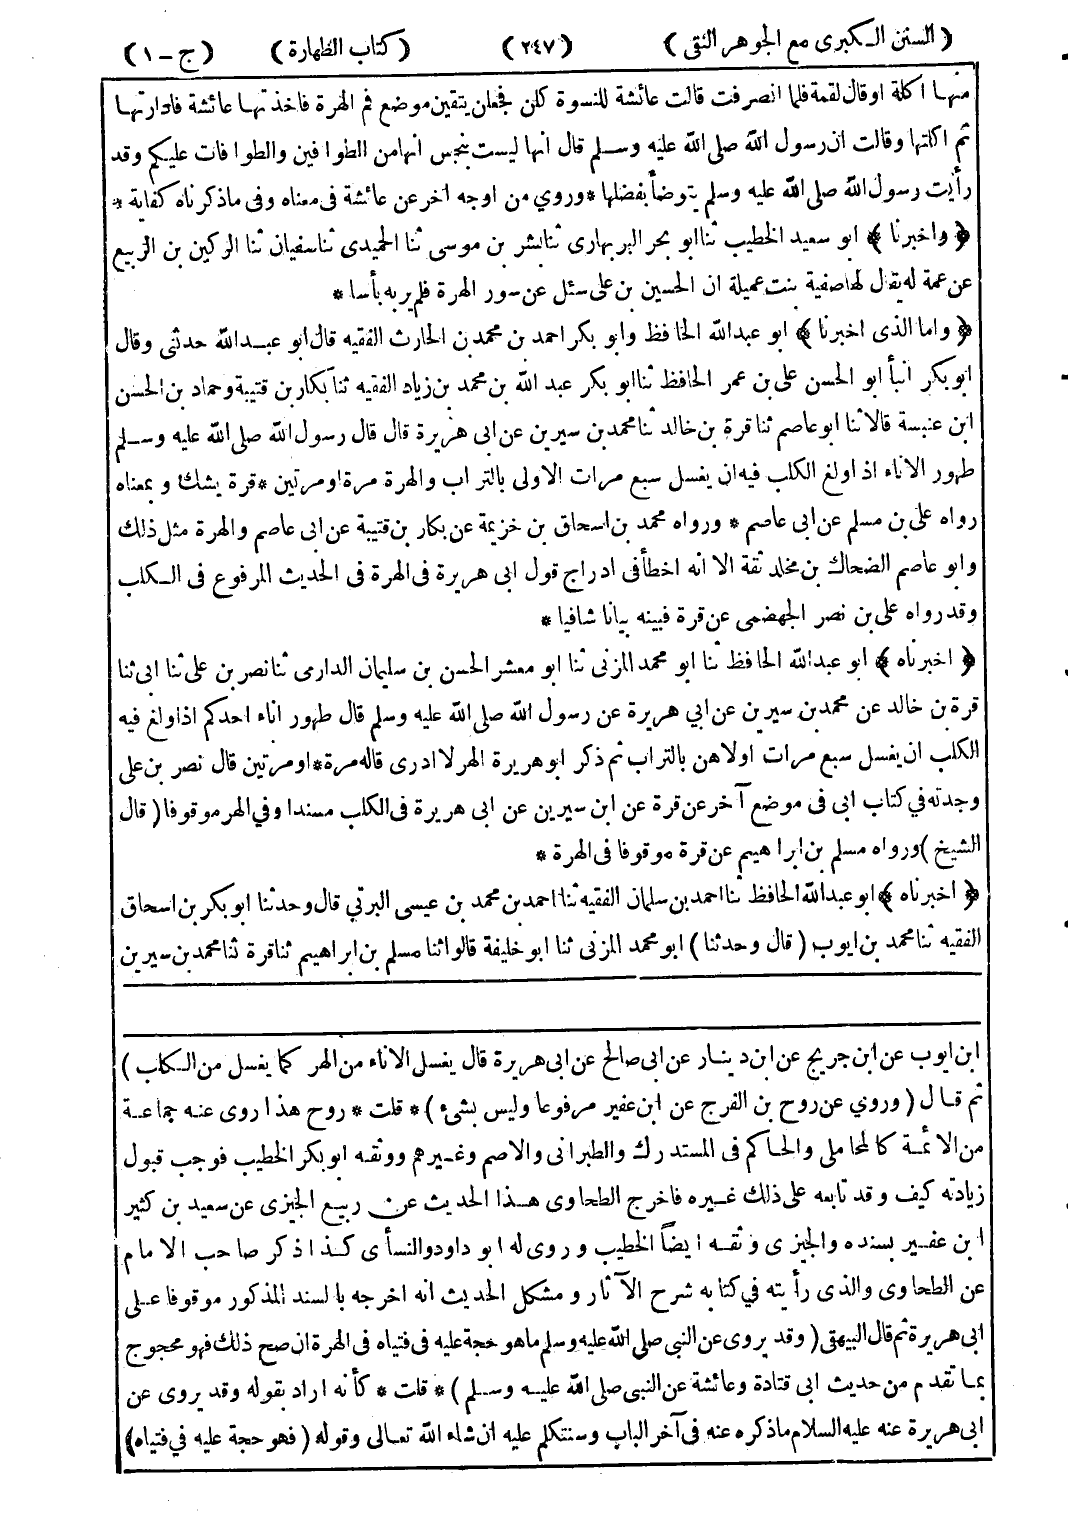 (السنن الكبرى مع الجوهر النقى) (٢٤٧) (كتاب الطهارة) (ج-١)
منها اكلة او قال لقمة فلما انصرفت قالت عائشة للنسوة كلن فجعلن يتقين موضع فم الهرة فاخذتها عائشة فادارتها
ثم اكلتها وقالت ان رسول الله صلى الله عليه وسلم قال انها ليست بنجس انها من الطوافين والطوافات عليكم وقد
رأيت رسول الله صلى الله عليه وسلم يتوضأ بفضلها * وروي من اوجه اخر عن عائشة فى معناه وفى ما ذكرناه كفاية *
﴿ واخبرنا ﴾ ابو سعيد الخطيب ثنا ابو بحر البربهارى ثنا بشر بن موسى ثنا الحميدى ثنا سفيان ثنا الركين بن الربيع
عن عمة له يقال لها صفية بنت عميلة ان الحسين بن على سئل عن سور الهرة فلم ير به بأسا *
﴿ واما الذى اخبرنا ﴾ ابو عبد الله الحافظ وابو بكر احمد بن محمد بن الحارث الفقيه قال ابو عبد الله حدثنى وقال
ابو بكر انبأ ابو الحسن على بن عمر الحافظ ثنا ابو بكر عبد الله بن محمد بن زياد الفقيه ثنا بكار بن قتيبة وحماد بن الحسن
ابن عنبسة قالا ثنا ابو عاصم ثنا قرة بن خالد ثنا محمد بن سيرين عن ابى هريرة قال قال رسول الله صلى الله عليه وسلم
طهور الاناء اذا ولغ الكلب فيه ان يغسل سبع مرات الاولى بالتراب والهرة مرة او مرتين * قرة يشك وبمعناه
رواه على بن مسلم عن ابى عاصم * ورواه محمد بن اسحاق بن خزيمة عن بكار بن قتيبة عن ابى عاصم والهرة مثل ذلك
وابو عاصم الضحاك بن مخلد ثقة الا انه اخطأ فى ادراج قول ابى هريرة فى الهرة فى الحديث المرفوع فى الكلب
وقد رواه على بن نصر الجهضمى عن قرة فبينه بيانا شافيا *
﴿ اخبرناه ﴾ ابو عبد الله الحافظ ثنا ابو محمد المزنى ثنا ابو معشر الحسن بن سليمان الدارمى ثنا نصر بن على ثنا ابى ثنا
قرة بن خالد عن محمد بن سيرين عن ابي هريرة عن رسول الله صلى الله عليه وسلم قال طهور اناء احدكم اذا ولغ فيه
الكلب ان يغسل سبع مرات اولاهن بالتراب ثم ذكر ابو هريرة الهر لا ادرى قاله مرة * او مرتين قال نصر بن على
وجدته في كتاب ابى فى موضع آخر عن قرة عن ابن سيرين عن ابى هريرة فى الكلب مسندا وفي الهر موقوفا ( قال
الشيخ ) ورواه مسلم بن ابراهيم عن قرة موقوفا فى الهرة *
﴿ اخبرناه ﴾ ابو عبد الله الحافظ ثنا احمد بن سلمان الفقيه ثنا احمد بن محمد بن عيسى البرتي قال وحدثنا ابو بكر بن اسحاق
الفقيه ثنا محمد بن ايوب ( قال وحدثنا ) ابو محمد المزنى ثنا ابو خليفة قالوا ثنا مسلم بن ابراهيم ثنا قرة ثنا محمد بن سيرين
ابن ايوب عن ابن جريج عن ابن دينار عن ابى صالح عن ابى هريرة قال يغسل الاناء من الهر كما يغسل من الكلب )
ثم قال ( وروي عن روح بن الفرج عن ابن عفير مرفوعا وليس بشئ ) * قلت * روح هذا روى عنه جماعة
من الائمة كالمحاملى والحاكم فى المستدرك والطبرانى والاصم وغيرهم ووثقه ابو بكر الخطيب فوجب قبول
زيادته كيف وقد تابعه على ذلك غيره فاخرج الطحاوى هذا الحديث عن ربيع الجيزى عن سعيد بن كثير
ابن عفير بسنده والجيزى وثقه ايضاً الخطيب وروى له ابو داود والنسأى كذا ذكر صاحب الامام
عن الطحاوى والذى رأيته في كتابه شرح الآثار ومشكل الحديث انه اخرجه بالسند المذكور موقوفا على
ابى هريرة ثم قال البيهقى ( وقد يروى عن النبى صلى الله عليه وسلم ما هو حجة عليه فى فتياه فى الهرة ان صح ذلك فهو محجوج
بما تقدم من حديث ابى قتادة وعائشة عن النبى صلى الله عليه وسلم ) * قلت * كأنه اراد بقوله وقد يروى عن
ابى هريرة عنه عليه السلام ما ذكره عنه فى آخر الباب وسنتكلم عليه ان شاء الله تعالى وقوله ( فهو حجة عليه في فتياه )